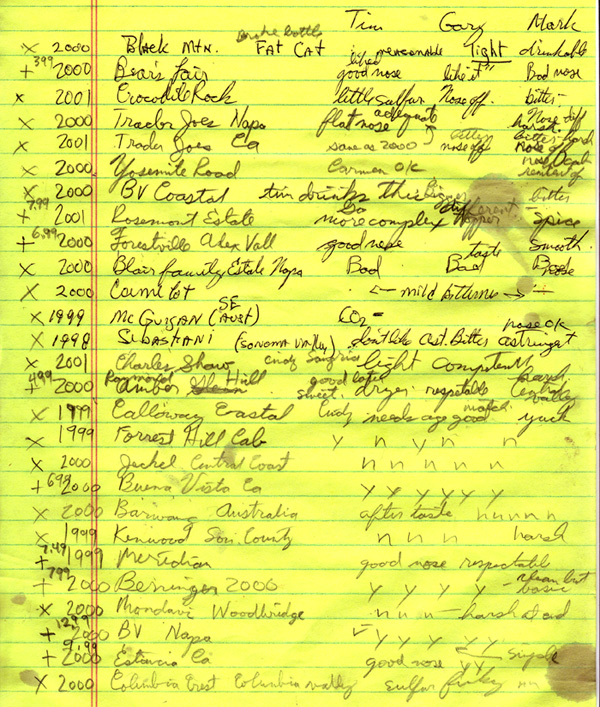 Tim Gary Mark
broke bottle
x 2000 Black Mtn. FAT CAT reasonable light drinkable
+ 3.99 2000 Bear's fair liked good nose like it" Bad nose
x 2001 Crocodile Rock little sulfur Nose off. bitter
x 2000 Trader Joes Napa flat nose adequate Nose off harsh
x 2001 Trader Joes Ca same as 2000 nose off bitter-hard nose off
x 2000 Yosemite Road Carmen OK
x 2000 BV Coastal tim drinks this bitter
+ 7.99 2001 Rosemont Estate more complex different Spice
+ 6.99 2000 Forestville Alex Vall good nose taste Smooth.
x 2000 Blair family Estate Napa Bad Bad Bad
x 2000 Camelot <- mild bitterness ->
x 1999 McGUIGAN (SE AUST) CO2- nose OK
x 1998 SEBASTIANI (SONOMA VALLEY) don't like Ast. Bitter astringent
x 2001 Charles Shaw cindy Sangria light competent
+ 4.99 2000 Raymond Amber Hill good later sweet. dryer respectable
x 1999 Calloway Coastal Cindy needs age good yuck
x 1999 Forrest Hill Cab y n y n n
x 2000 Jeckel Central Coast n n n n n
+ 6.99 2000 Buena Vista Ca y y y y y
x 2000 Barwang Australia after taste n n n n n
x 1999 Kenwood Son. County n n n harsh
+ 7.49 1999 Meridian good nose respectable
+ 7.99 2000 Beringer 2000 y y y y clean but basic
x 2000 Mondavi Woodbridge n n n - harsh at end
+ 12.99 2000 BV Napa y y y y
+ 9.99 2000 Estancia Ca good nose y y <- simple
x 2000 Columbia Crest Columbia Vally sulfur funky nn